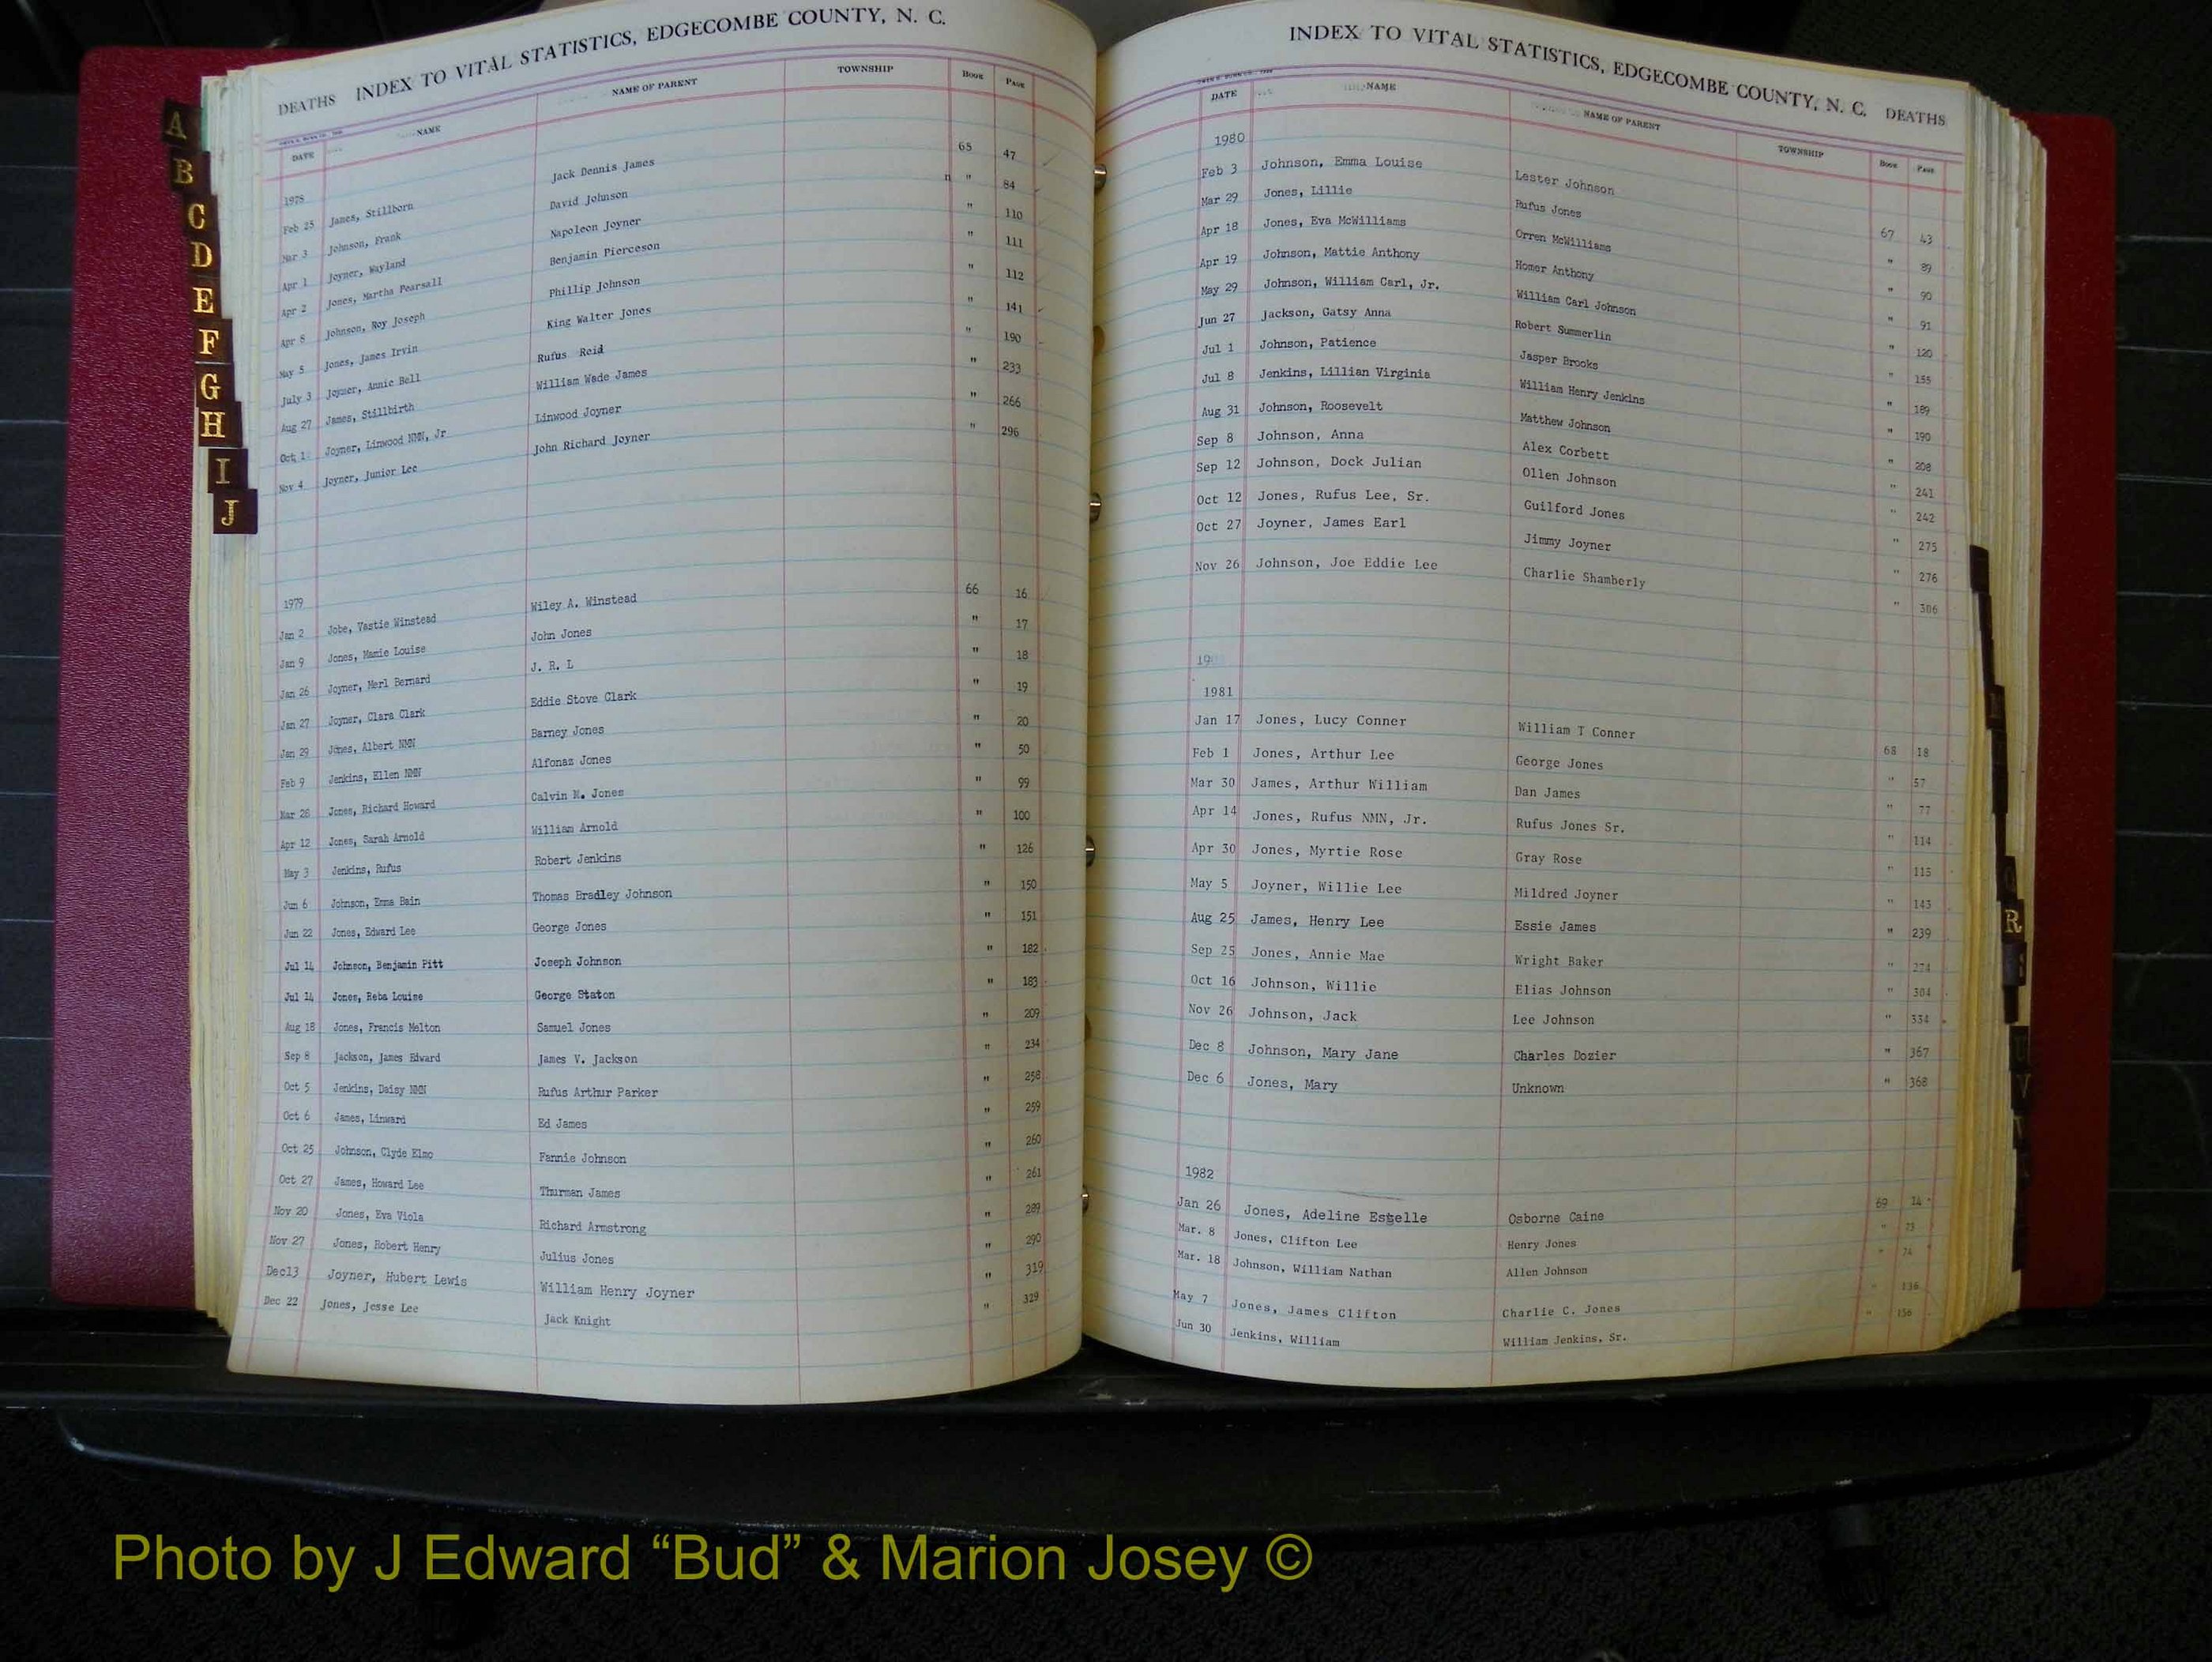 DEATHS INDEX TO VITAL STATISTICS, EDGECOMBE COUNTY, N. C.
DATE NAME NAME OF PARENT TOWNSHIP BOOK PAGE
1978
Feb 25 James, Stillborn Jack Dennis James 65 47
Mar 3 Johnson, Frank David Johnson " " 84
Apr 1 Joyner, Wayland Napoleon Joyner " 110
Apr 2 Jones, Martha Pearsall Benjamin Pierceson " 111
Apr 8 Johnson, Roy Joseph Phillip Johnson " 112
May 5 Jones, James Irvin King Walter Jones " 141
July 3 Joyner, Annie Bell Rufus Reid " 190
Aug 27 James, Stillbirth William Wade James " 233
Oct 1 Joyner, Linwood NMN, Jr Linwood Joyner " 266
Nov 4 Joyner, Junior Lee John Richard Joyner " 296
1979
Jan 2 Jobe, Vastie Winstead Wiley A. Winstead 66 16
Jan 9 Jones, Mamie Louise John Jones " 17
Jan 26 Joyner, Merl Bernard J. R. L " 18
Jan 27 Joyner, Clara Clark Eddie Stove Clark " 19
Jan 29 Jones, Albert NMN Barney Jones " 20
Feb 9 Jenkins, Ellen NMN Alfonaz Jones " 50
Mar 28 Jones, Richard Howard Calvin M. Jones " 99
Apr 12 Jones, Sarah Arnold William Arnold " 100
May 3 Jenkins, Rufus Robert Jenkins " 126
Jun 6 Johnson, Emma Bain Thomas Bradley Johnson " 150
Jun 22 Jones, Edward Lee George Jones " 151
Jul 14 Johnson, Benjamin Pitt Joseph Johnson " 182
Jul 14 Jones, Reba Louise George Staton " 183
Aug 18 Jones, Francis Melton Samuel Jones " 209
Sep 8 Jackson, James Edward James V. Jackson " 234
Oct 5 Jenkins, Daisy NMN Rufus Arthur Parker " 258
Oct 6 James, Linward Ed James " 259
Oct 25 Johnson, Clyde Elmo Fannie Johnson " 260
Oct 27 James, Howard Lee Thurman James " 261
Nov 20 Jones, Eva Viola Richard Armstrong " 289
Nov 27 Jones, Robert Henry Julius Jones " 290
Dec13 Joyner, Hubert Lewis William Henry Joyner " 319
Dec 22 Jones, Jesse Lee Jack Knight " 329
INDEX TO VITAL STATISTICS, EDGECOMBE COUNTY, N. C. DEATHS
DATE NAME NAME OF PARENT TOWNSHIP BOOK PAGE
1980
Feb 3 Johnson, Emma Louise Lester Johnson 67 43
Mar 29 Jones, Lillie Rufus Jones " 89
Apr 18 Jones, Eva McWilliams Orren McWilliams " 90
Apr 19 Johnson, Mattie Anthony Homer Anthony " 91
May 29 Johnson, William Carl, Jr. William Carl Johnson " 120
Jun 27 Jackson, Gatsy Anna Robert Summerlin " 155
Jul 1 Johnson, Patience Jasper Brooks " 189
Jul 8 Jenkins, Lillian Virginia William Henry Jenkins " 190
Aug 31 Johnson, Roosevelt Matthew Johnson " 208
Sep 8 Johnson, Anna Alex Corbett " 241
Sep 12 Johnson, Dock Julian Ollen Johnson " 242
Oct 12 Jones, Rufus Lee, Sr. Guilford Jones " 275
Oct 27 Joyner, James Earl Jimmy Joyner " 276
Nov 26 Johnson, Joe Eddie Lee Charlie Shamberly " 306
1981
Jan 17 Jones, Lucy Conner William T Conner 68 18
Feb 1 Jones, Arthur Lee George Jones " 57
Mar 30 James, Arthur William Dan James " 77
Apr 14 Jones, Rufus NMN, Jr. Rufus Jones Sr. " 114
Apr 30 Jones, Myrtie Rose Gray Rose " 115
May 5 Joyner, Willie Lee Mildred Joyner " 143
Aug 25 James, Henry Lee Essie James " 239
Sep 25 Jones, Annie Mae Wright Baker " 274
Oct 16 Johnson, Willie Elias Johnson " 304
Nov 26 Johnson, Jack Lee Johnson " 334
Dec 8 Johnson, Mary Jane Charles Dozier " 367
Dec 6 Jones, Mary Unknown " 368
1982
Jan 26 Jones, Adeline Estelle Osborne Caine 69 14
Mar. 8 Jones, Clifton Lee Henry Jones " 73
Mar. 18 Johnson, William Nathan Allen Johnson " 74
May 7 Jones, James Clifton Charlie C. Jones " 136
Jun 30 Jenkins, William William Jenkins, Sr. " 156
A
B
C
D
E
F
G
H
I
J
R
Photo by J Edward “Bud” & Marion Josey ©